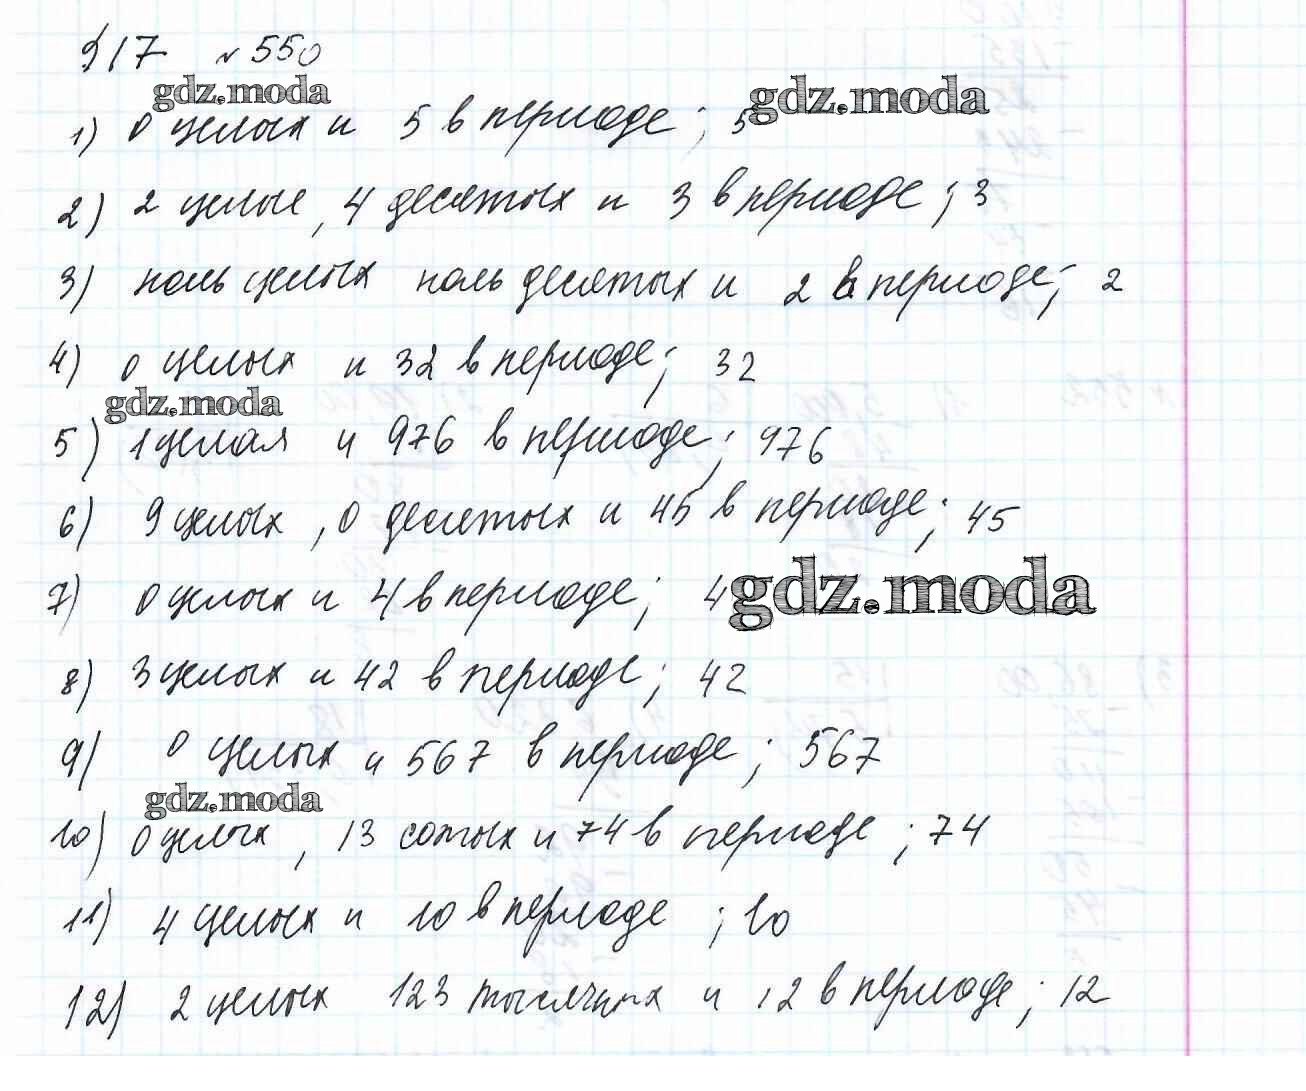 §17 № 550
gdz.moda gdz.moda
1) 0 целых и 5 в периоде; 5
2) 2 целые, 4 десятых и 3 в периоде; 3
3) ноль целых ноль десятых и 2 в периоде; 2
4) 0 целых и 32 в периоде; 32
gdz.moda
5) 1 целая и 976 в периоде; 976
6) 9 целых, 0 десятых и 45 в периоде; 45
7) 0 целых и 4 в периоде; 4
gdz.moda
8) 3 целых и 42 в периоде; 42
9) 0 целых и 567 в периоде; 567
gdz.moda
10) 0 целых, 13 сотых и 74 в периоде; 74
11) 4 целых и 10 в периоде; 10
12) 2 целых 123 тысячных и 12 в периоде; 12